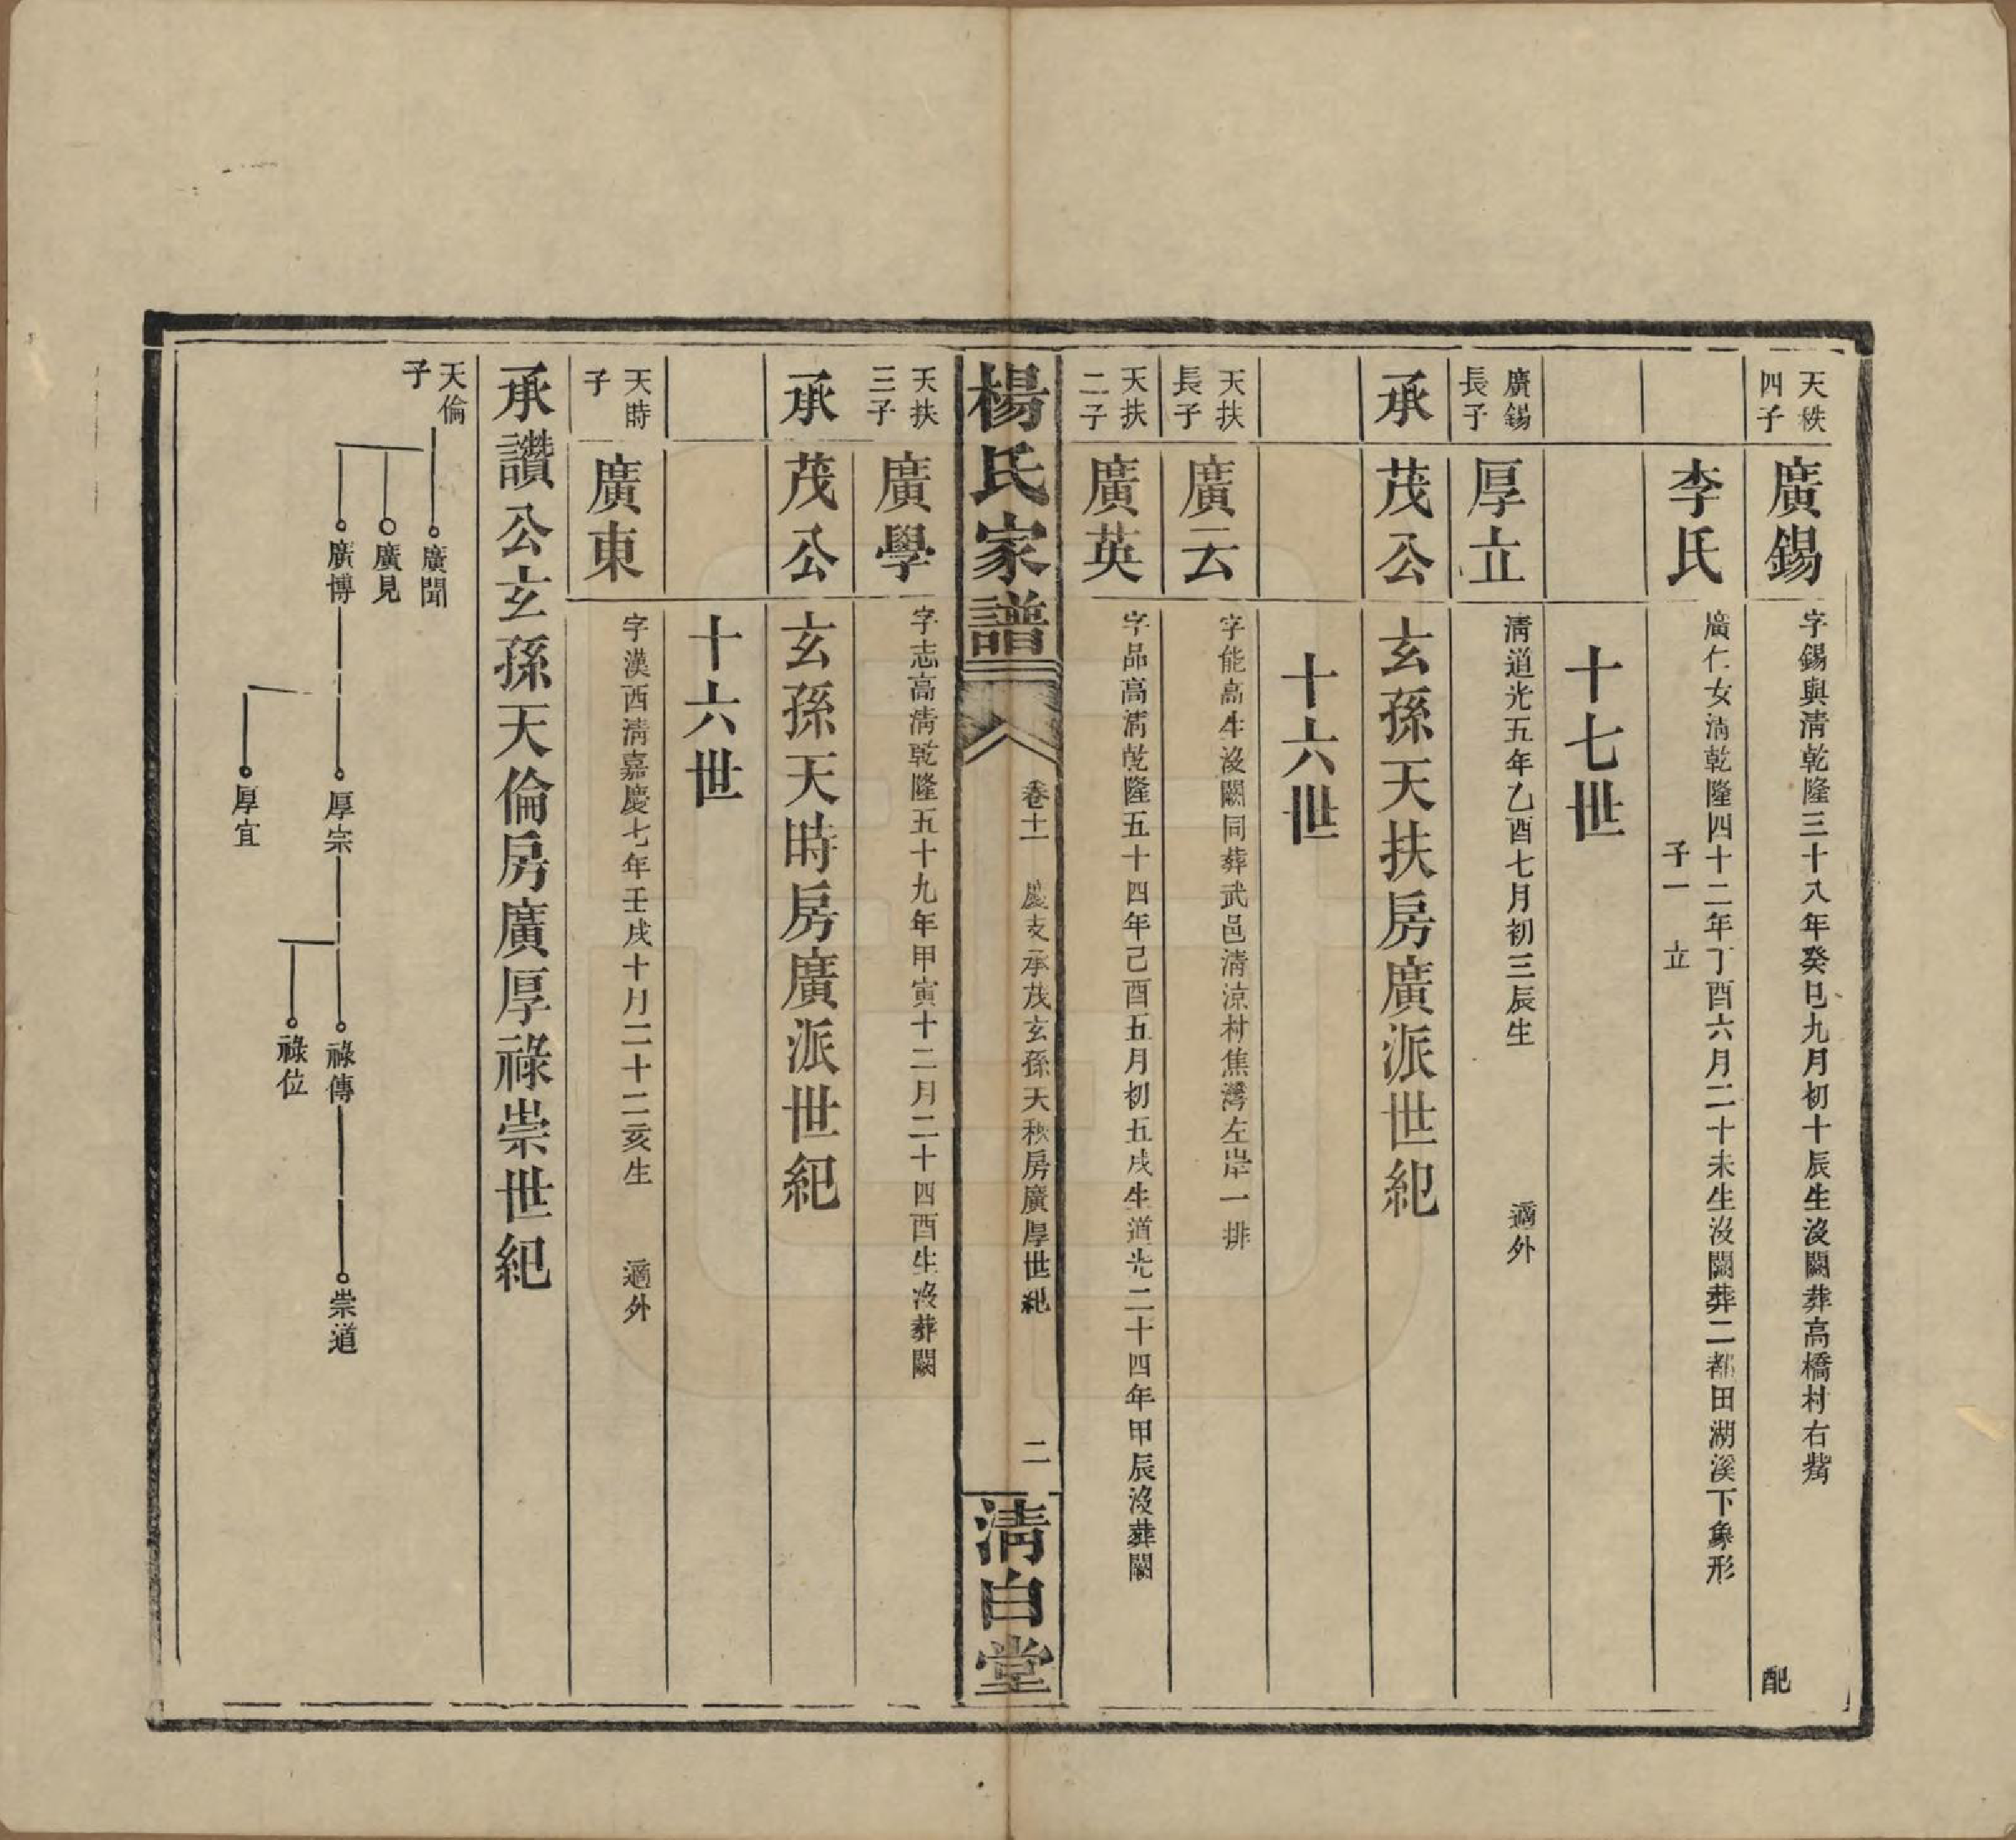 天秩四子
廣錫
字錫與清乾隆三十八年癸巳九月初十辰生沒闕葬高橋村右嘴
配
李氏
廣仁女清乾隆四十二年丁酉六月二十未生沒闕葬二都田湖溪下象形
子一 立
十七世
廣錫長子
厚立
清道光五年乙酉七月初三辰生 適外
承茂公玄孫天扶房廣派世紀
十六世
天扶長子
廣云
字能高生沒闕同葬武邑清涼村焦灣左岸一排
天扶二子
廣英
字品高清乾隆五十四年己酉五月初五戌生道光二十四年甲辰沒葬闕
楊氏家譜
卷十一 慶支承茂玄孫天秩房廣厚世紀 二
清白堂
天扶三子
廣學
字志高清乾隆五十九年甲寅十二月二十四酉生沒葬闕
承茂公玄孫天時房廣派世紀
十六世
天時子
廣東
字漢西清嘉慶七年壬戌十月二十二亥生 適外
承讚公玄孫天倫房廣厚祿崇世紀
天倫子
廣聞
廣見
廣博
厚宗
厚宜
祿傳
祿位
崇道